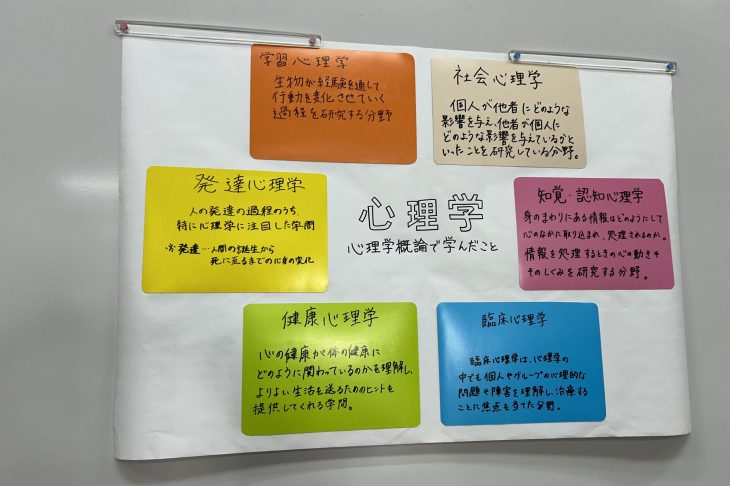 学習心理学
生物が経験を通して
行動を変化させていく
過程を研究する分野
社会心理学
個人が他者にどのような
影響を与え、他者が個人に
どのような影響を与えているかと
いったことを研究している分野。
発達心理学
人の発達の過程のうち、
特に心理学に注目した学問
※発達…人間の誕生から
死に至るまでの心身の変化
心理学
心理学概論で学んだこと
知覚・認知心理学
身のまわりにある情報はどのようにして
心のなかに取り込まれ、処理されるのか。
情報を処理するときの心の動きや
そのしくみを研究する分野。
健康心理学
心の健康が体の健康に
どのように関わっているのかを理解し、
よりよい生活を送るためのヒントを
提供してくれる学問。
臨床心理学
臨床心理学は、心理学の
中でも個人やグループの心理的な
問題や障害を理解し、治療する
ことに焦点を当てた分野。